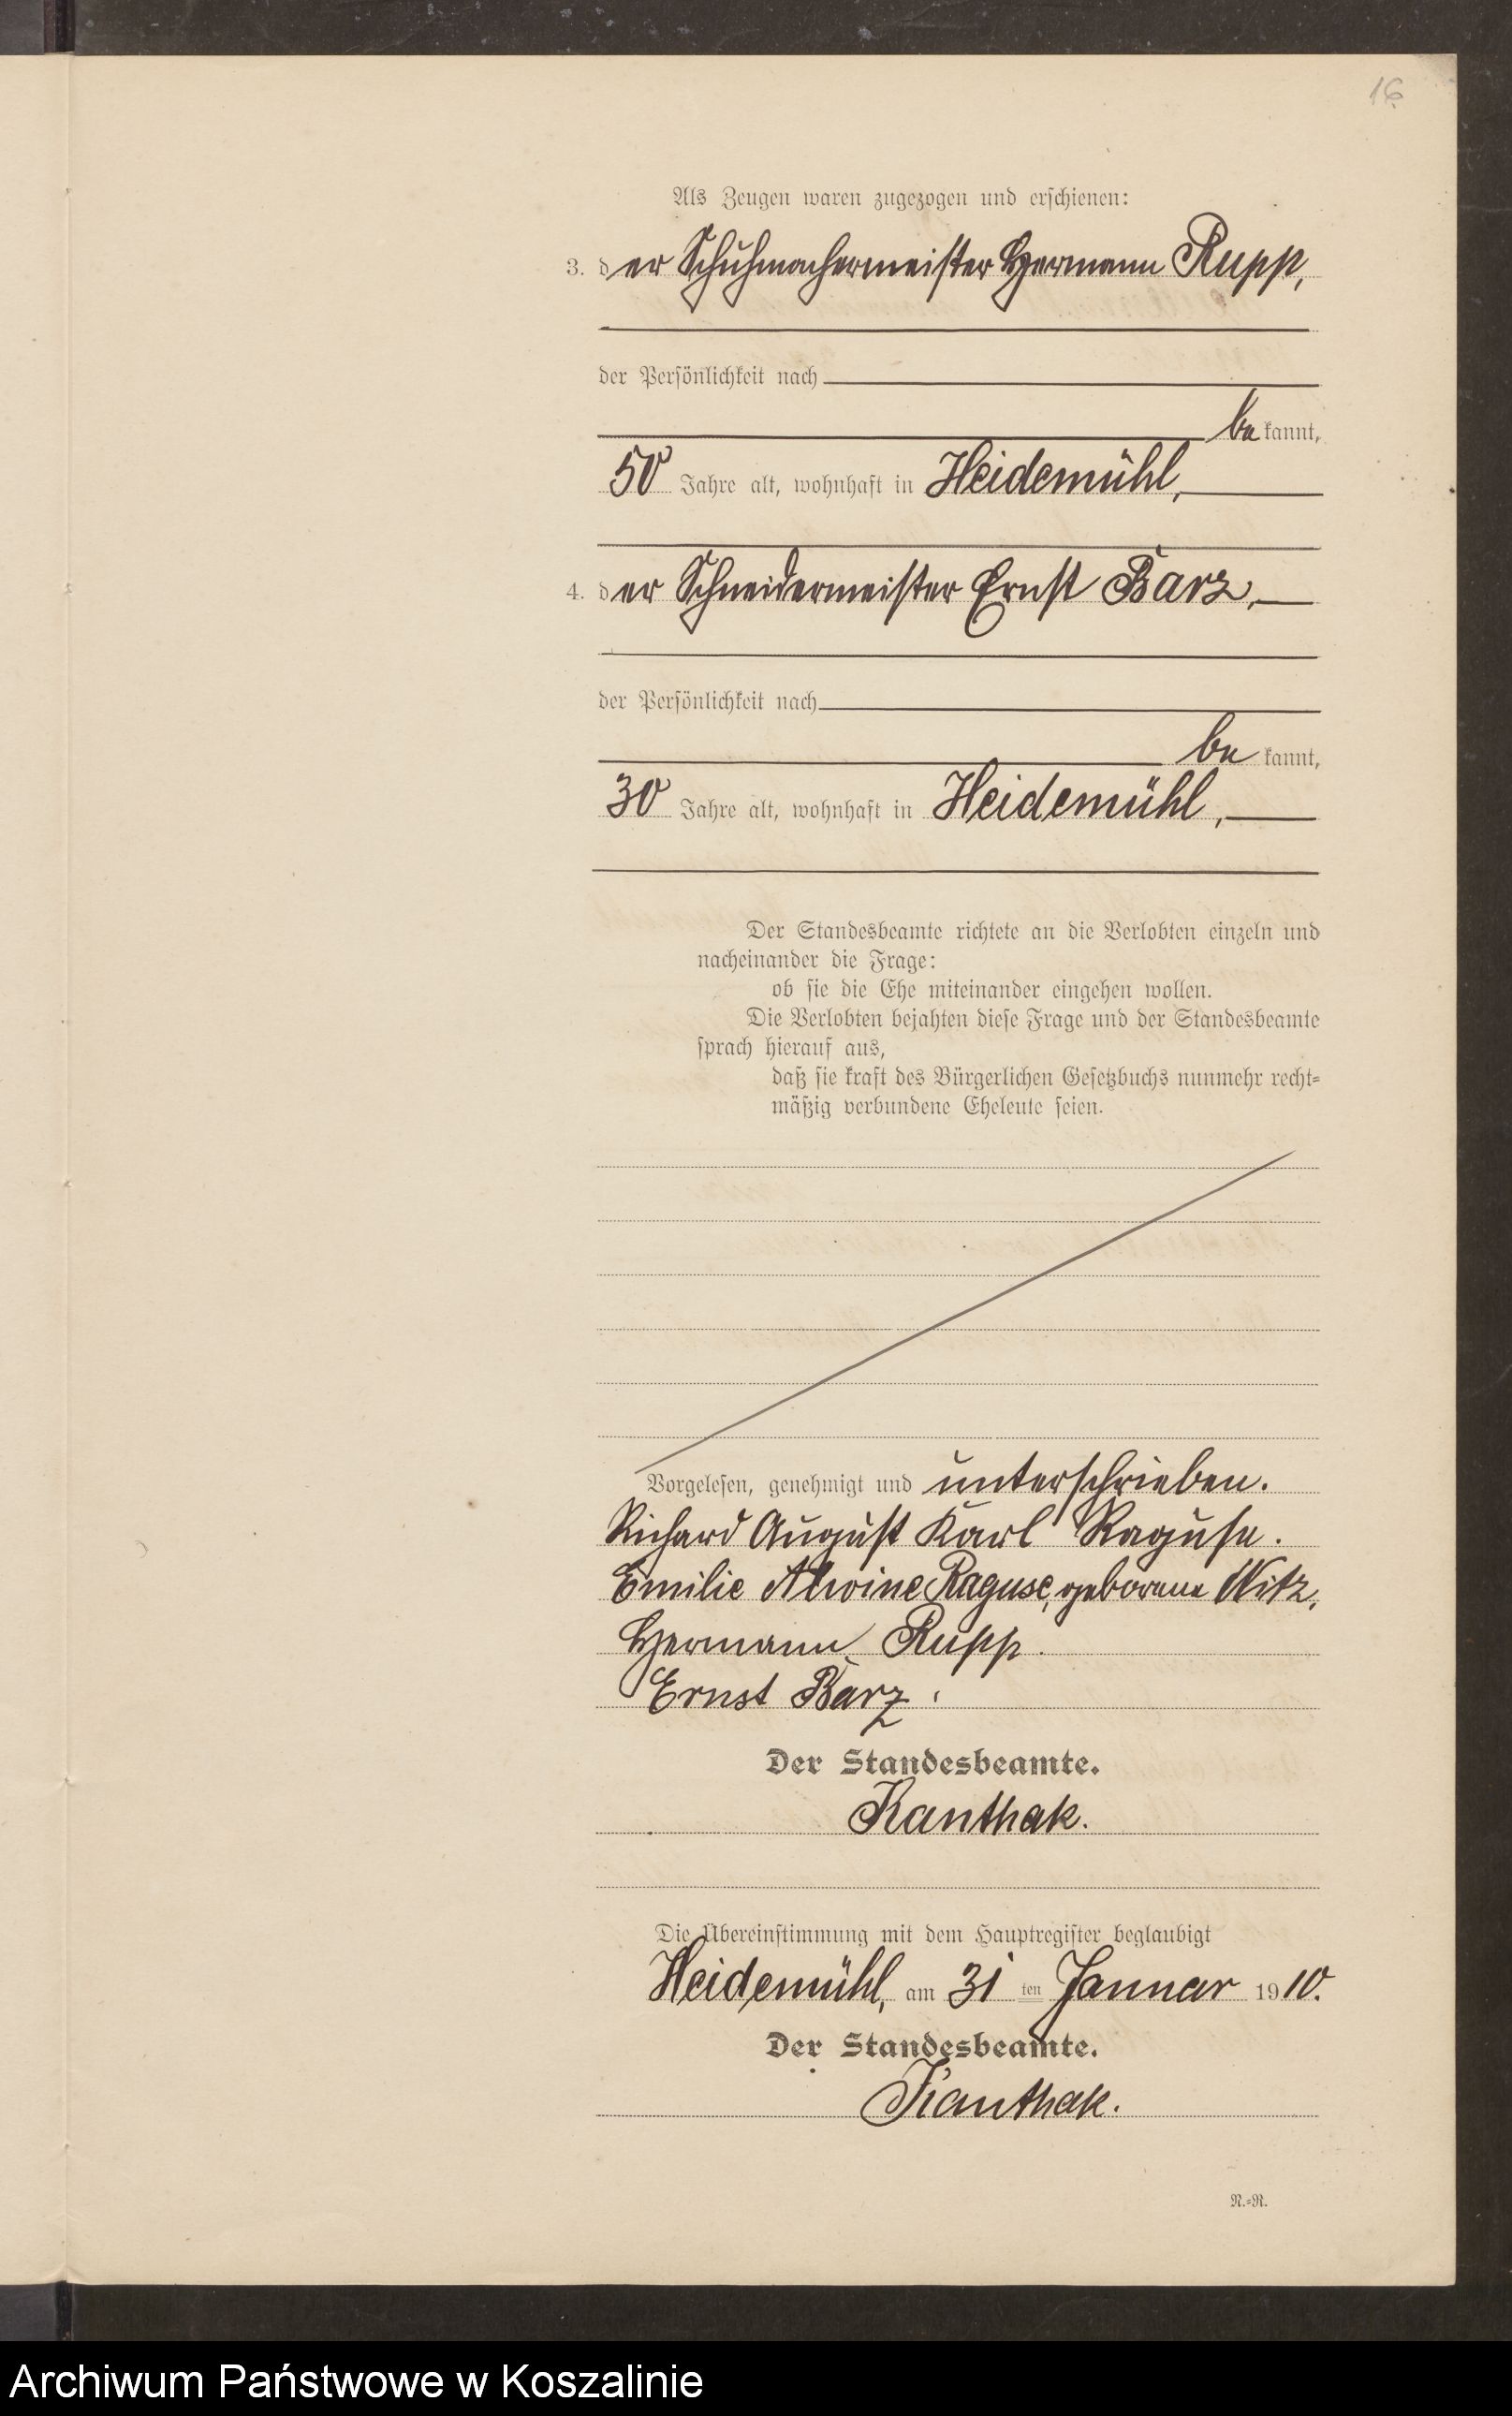 16
Als Zeugen waren zugezogen und erschienen:
3. der Schuhmachermeister Hermann Rupp,
der Persönlichkeit nach
bekannt,
50 Jahre alt, wohnhaft in Heidemühl,
4. der Schneidermeister Ernst Barz,
der Persönlichkeit nach
bekannt,
30 Jahre alt, wohnhaft in Heidemühl,
Der Standesbeamte richtete an die Verlobten einzeln und
nacheinander die Frage:
ob sie die Ehe miteinander eingehen wollen.
Die Verlobten bejahten diese Frage und der Standesbeamte
sprach hierauf aus,
daß sie kraft des Bürgerlichen Gesetzbuchs nunmehr recht=
mäßig verbundene Eheleute seien.
Vorgelesen, genehmigt und unterschrieben.
Richard August Karl Raguse.
Emilie Alwine Raguse, geborene Witz.
Hermann Rupp.
Ernst Barz.
Der Standesbeamte.
Kanthak.
Die Übereinstimmung mit dem Hauptregister beglaubigt
Heidemühl, am 31 ten Januar 1910.
Der Standesbeamte.
Kanthak.
N.=R.
Archiwum Państwowe w Koszalinie